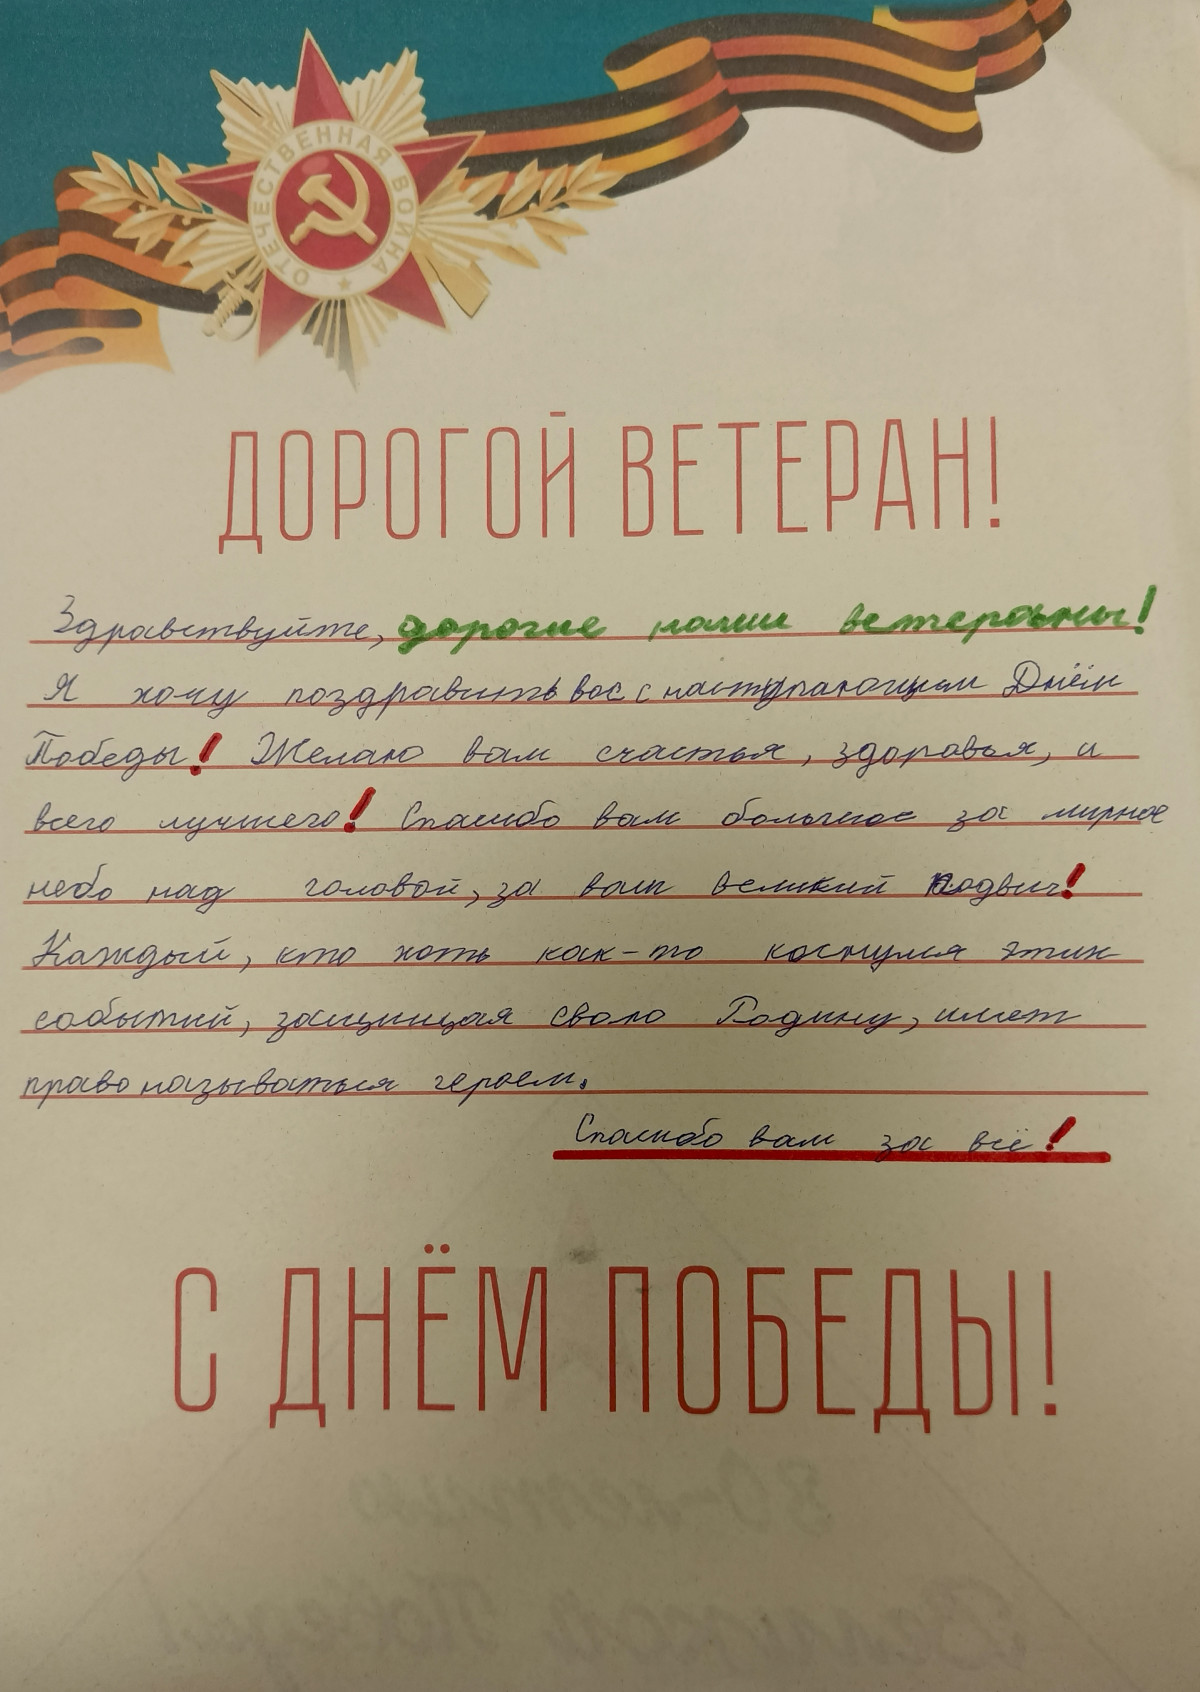 ОТЕЧЕСТВЕННАЯ ВОЙНА
ДОРОГОЙ ВЕТЕРАН!
Здравствуйте, дорогие наши ветераны!
Я хочу поздравить вас с наступающим Днём
Победы! Желаю вам счастья, здоровья, и
всего лучшего! Спасибо вам большое за мирное
небо над головой, за ваш великий подвиг!
Каждый, кто хоть как-то коснулся этих
событий, защищая свою Родину, имеет
право называться героем.
Спасибо вам за всё!
С ДНЁМ ПОБЕДЫ!